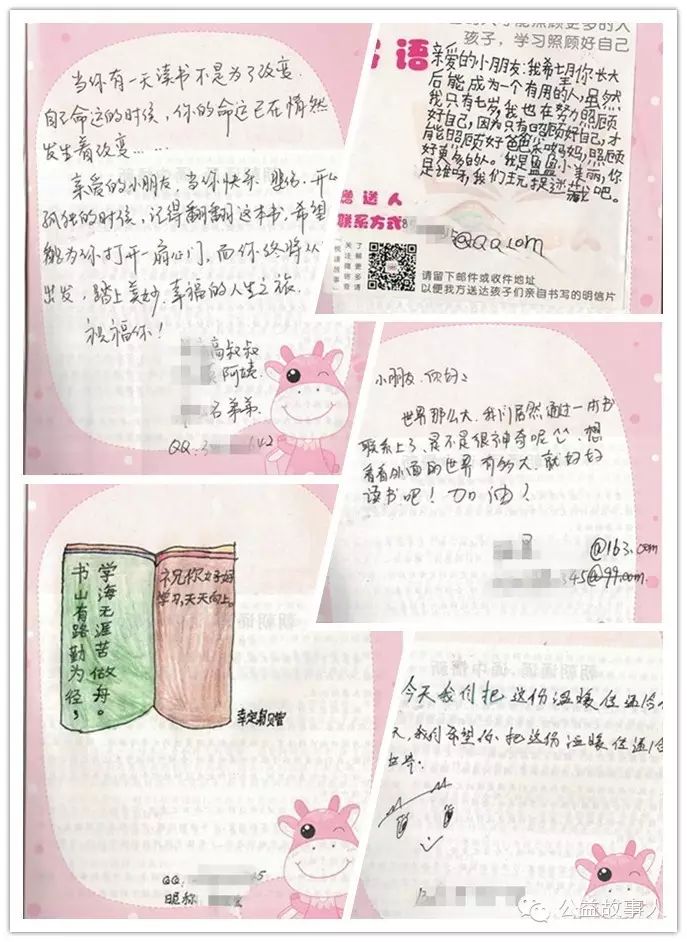 当你有一天读书不是为了改变
自己命运的时候，你的命运已在悄然
发生着改变……
亲爱的小朋友，当你快乐、悲伤、开心
孤独的时候，记得翻翻这本书，希望
能为你打开一扇心门，而你终将从
出发，踏上美妙、幸福的人生之旅．
祝福你！
高叔叔
阿姨
石弟弟
QQ:
孩子，学习照顾好自己
语
亲爱的小朋友：我希望你长大
后能成为一个有用的人，虽然
我只有七岁，我也在努力照顾
好自己，因为只有照顾好自己，才
能照顾好爸爸和妈妈，照顾
好更多的人。我是小美丽，你
是谁呀，我们玩捉迷藏吧。
赠送人
联系方式
@QQ.com
了解更多请
关注微信查
请留下邮件或收件地址
以便我方送达孩子们亲自书写的明信片
小朋友，你好：
世界那么大，我们居然通过一本书
联系上了，是不是很神奇呢 想
看看外面的世界有多大，就好好
读书吧！加油！
@163.com
345@99.com
学海无涯苦做舟。
书山有路勤为径，
祝你好好
学习，天天向上。
QQ:
昵称
今天我们把这份温暖传递给
天，我们希望你把这份温暖传递给
公益故事人